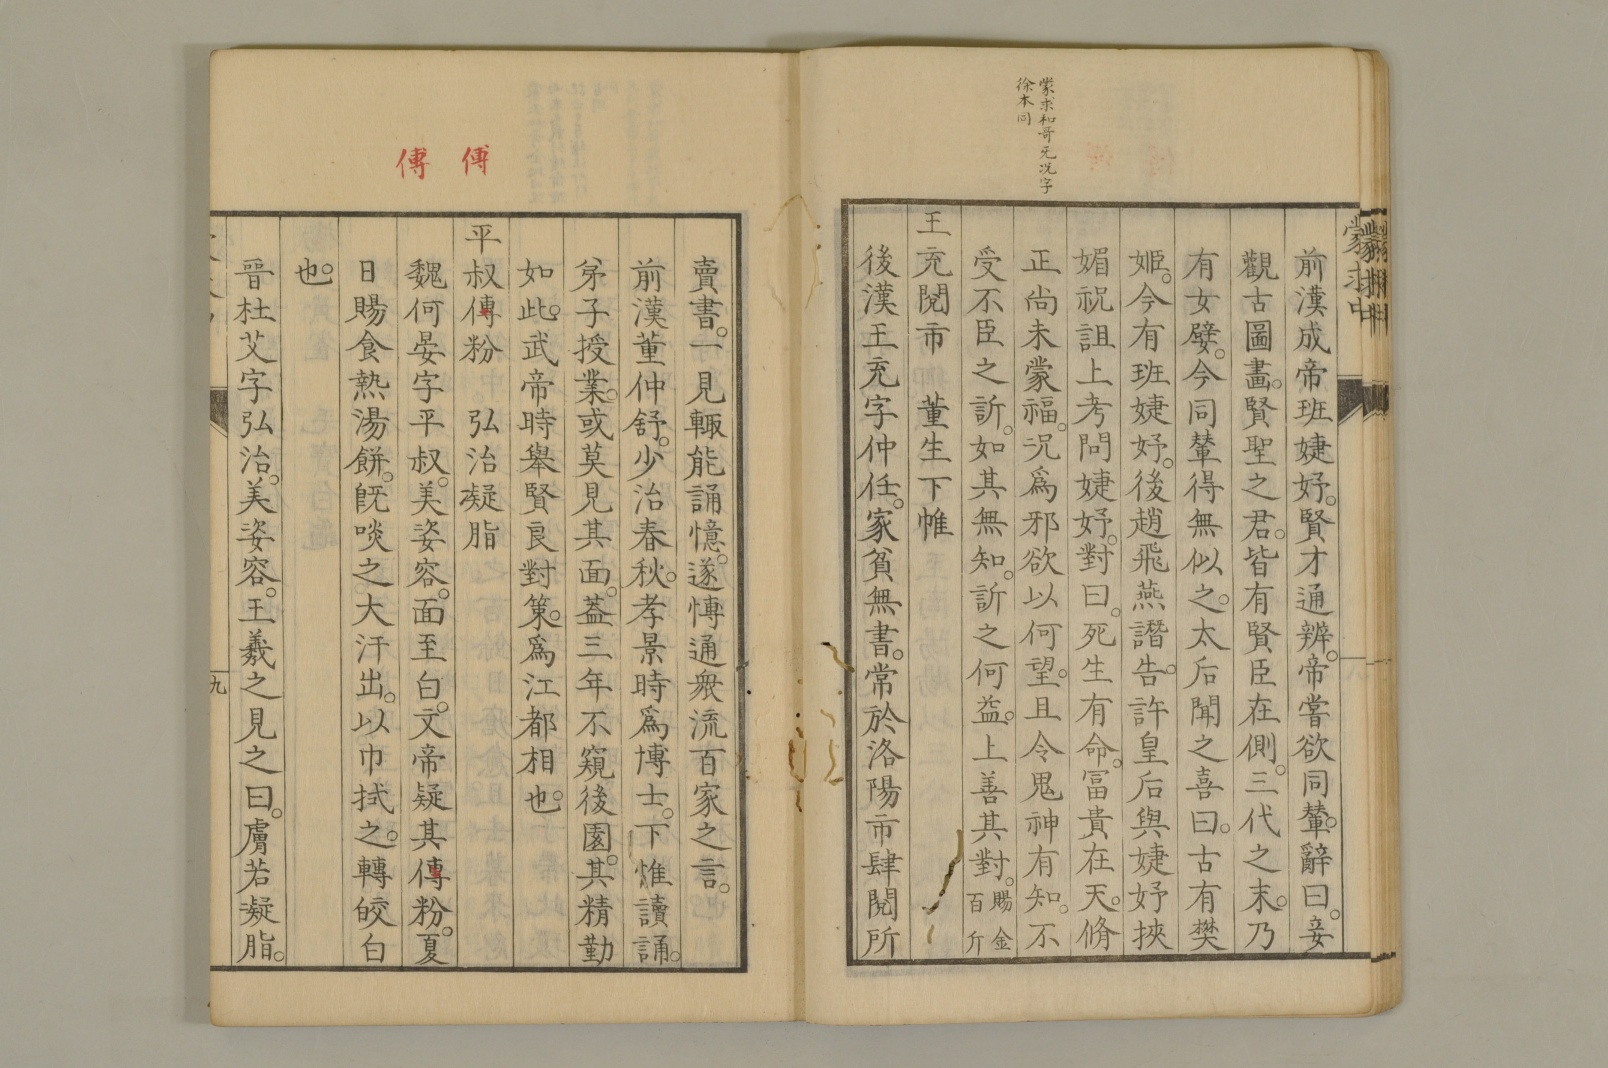 蒙求和哥无况字
徐本同
蒙求中
前漢成帝班婕妤。賢才通辨。帝嘗欲同輦。辭曰。妾
觀古圖畵。賢聖之君。皆有賢臣在側。三代之末。乃
有女嬖。今同輦得無似之。太后聞之喜曰。古有樊
姬。今有班婕妤。後趙飛燕譖告。許皇后與婕妤挾
媚祝詛上考問婕妤。對曰。死生有命。冨貴在天。脩
正尚未蒙福。况爲邪欲以何望。且令鬼神有知。不
受不臣之訴。如其無知。訴之何益。上善其對。賜金百斤
王充閱市　董生下帷
後漢王充字仲任。家貧無書。常於洛陽市肆閱所
傅
傅
賣書。一見輙能誦憶。遂博通衆流百家之言。
前漢董仲舒。少治春秋。孝景時爲博士。下帷讀誦。
弟子授業。或莫見其面。蓋三年不窺後園。其精勤
如此。武帝時舉賢良對策。爲江都相也。
平叔傅粉　弘治凝脂
魏何晏字平叔。美姿容。面至白。文帝疑其傅粉。夏
日賜食熱湯餅。旣啖之。大汗出。以巾拭之。轉皎白
也。
晉杜艾字弘治。美姿容。王羲之見之曰。膚若凝脂。
九